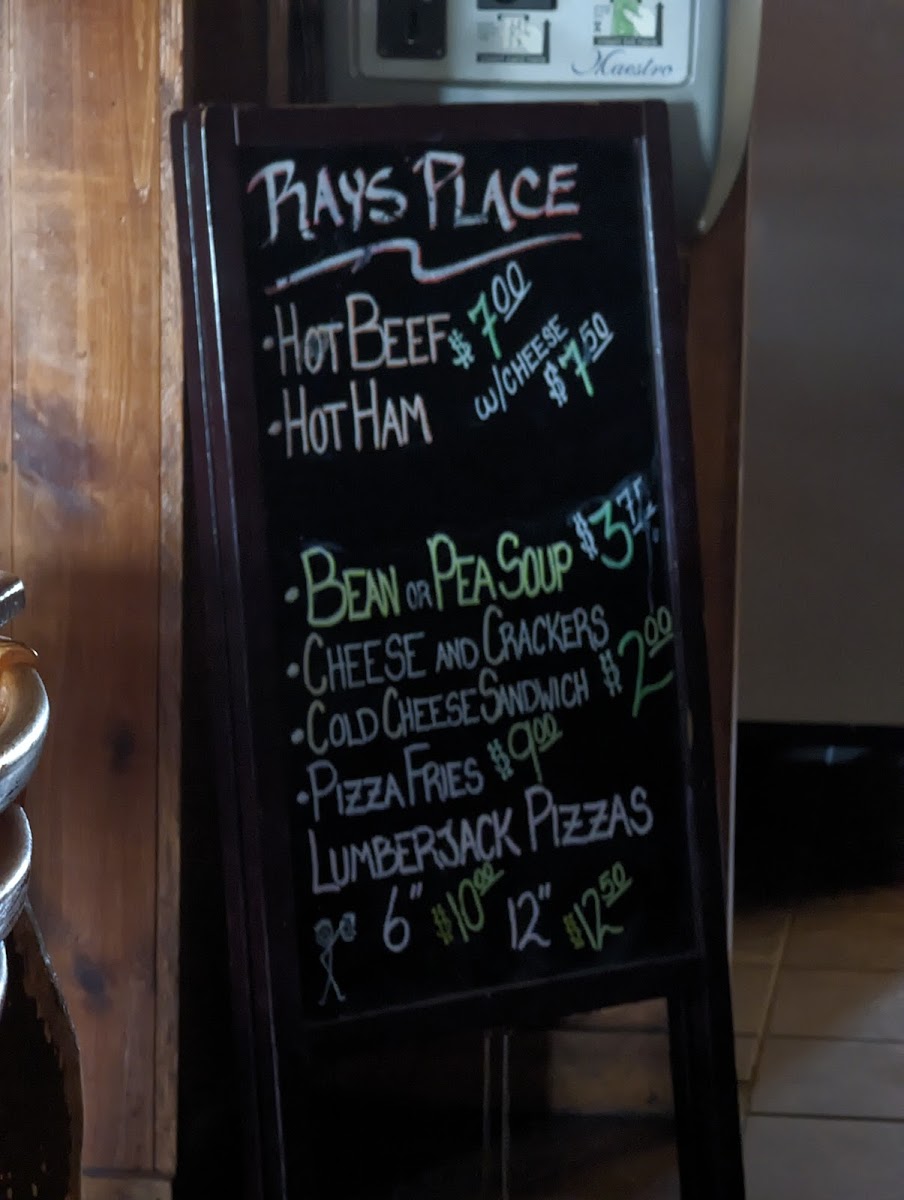 Maestro
RAYS PLACE
• HOT BEEF $7.00
• HOT HAM
W/CHEESE
$7.50
• BEAN OR PEA SOUP $3.75
• CHEESE AND CRACKERS
• COLD CHEESE SANDWICH $2.00
• PIZZA FRIES $9.00
LUMBERJACK PIZZAS
6" $10.00 12" $12.50